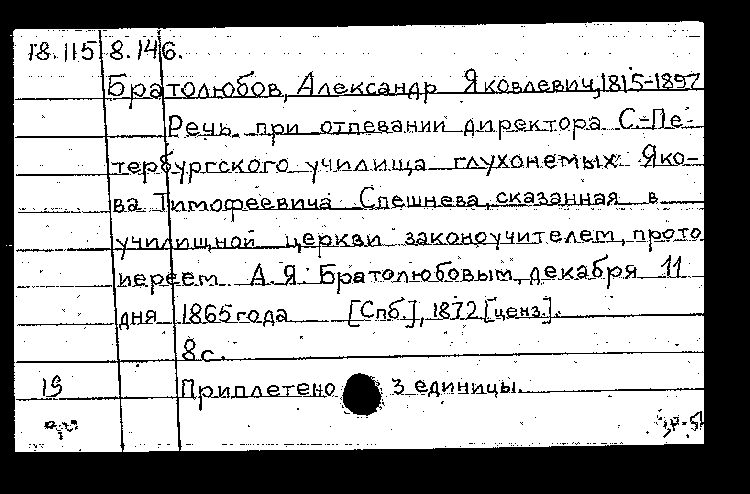 18.115 8.146.
Братолюбов, Александр Яковлевич, 1815-1897
Речь при отпевании директора С.-Пе-
тербургского училища глухонемых Яко-
ва Тимофеевича Спешнева, сказанная в
училищной церкви законоучителем, прото
иереем А.Я. Братолюбовым, декабря 11
дня 1865 года [Спб.], 1872 [ценз.].
8 с.
19 Приплетено 3 единицы.